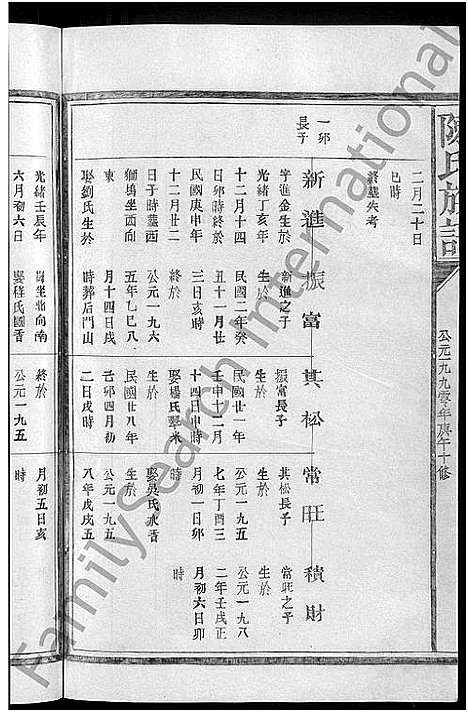 陳氏族譜
公元一九九零年庚午十修
二月二十日
巳時
終塟失考
一卯
長子
新進 振富 其松 常旺 積財
字進金生於
光緒丁亥年
十二月十四
日卯時終於
民國庚申年
十二月廿二
日子時塟酉
獅塢坐西向
東
娶劉氏生於
新進之子
生於
民國二年癸
丑十一月廿
三日亥時
終於
公元一九六
五年乙巳八
月十四日戌
時葬后門山
振富長子
生於
民國廿一年
壬申十二月
十四日申時
娶楊氏翠米
生於
民國廿八年
己卯四月初
二日戌時
其松長子
生於
公元一九五
七年丁酉三
月初一日卯
時
娶吳氏水香
生於
公元一九五
八年戊戌五
常旺之子
生於
公元一九八
二年壬戌正
月初六日卯
時
光緒壬辰年
六月初六日
坐北向南
娶程氏國香
終於
公元一九五
月初五日亥
時
FamilySearch International